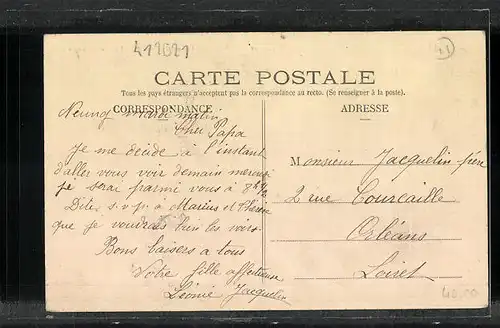 411021
41
CARTE POSTALE
Tous les pays étrangers n'acceptent pas la correspondance au recto. (Se renseigner à la poste).
CORRESPONDANCE
ADRESSE
Neung mardi matin
Cher Papa
Je me décide à l'instant
d'aller vous voir demain mercredi
je serai parmi vous à 8h ½
Dite s.v.p à Marius et Thérèse
que je voudrais bien les voir.
Bons baisers a tous
Votre fille affectueuse
Léonie Jacquelin
Monsieur Jacquelin père
2 rue Courcaille
Orléans
Loiret